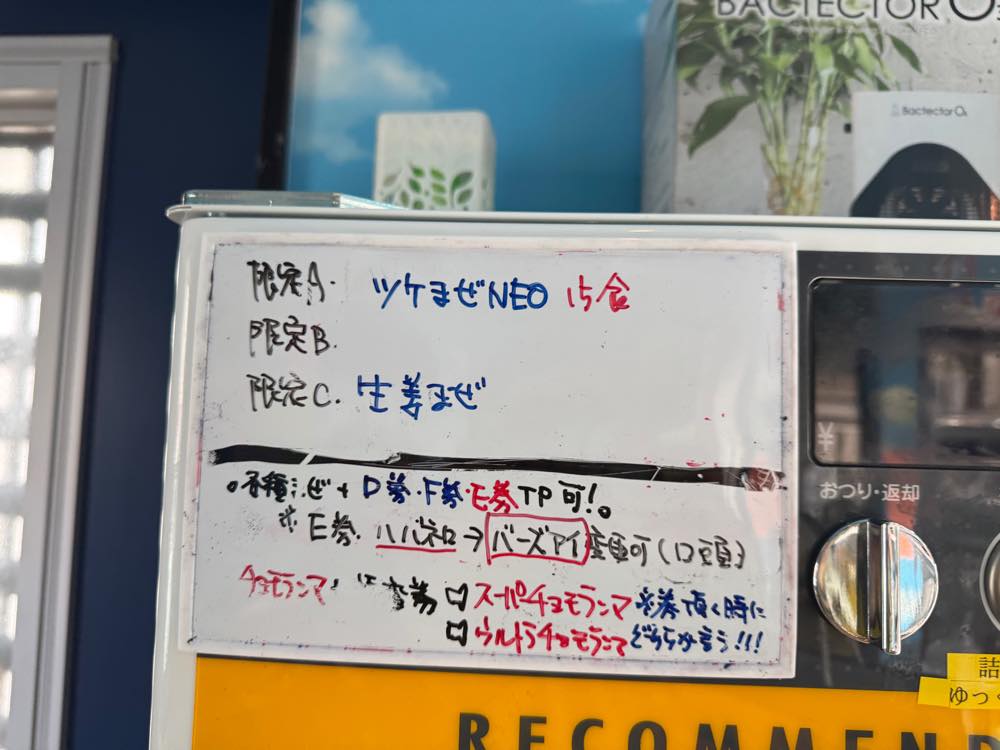 BACTECTOR O
Bactector O₃
限定A. ツケまぜNEO 15食
限定B.
限定C. 生姜まぜ
。各種まぜ + D券・F券・E券 TP可!。
※ E券 ハバネロ→バーズアイ変更可(口頭)
チョモランマ 券 □ スーパーチョモランマ ※券頂く時に
□ ウルトラチョモランマ どちらか言う!!!
¥
おつり・返却
詰
ゆっく
RECOMMEND